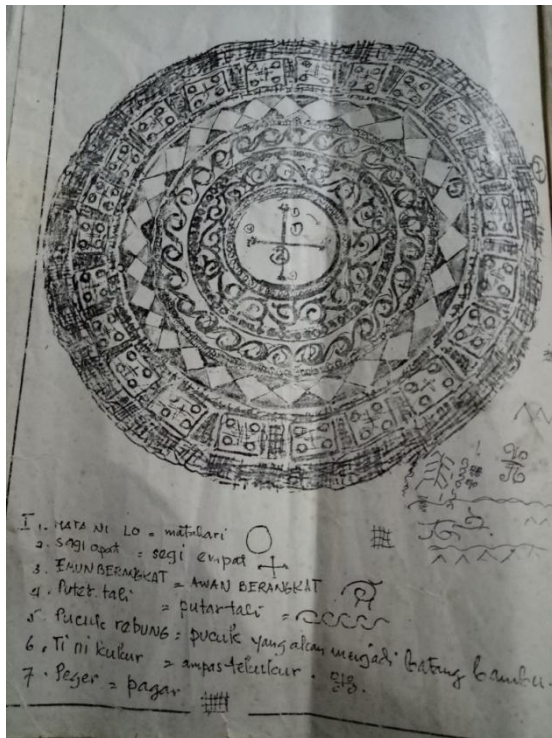 I 1. MATA NI LO = matahari
2. Segi opat = segi empat
3. EMUN BERANGKAT = AWAN BERANGKAT
4. Puter tali = putar tali =
5. Pucuk rebung = pucuk yang akan menjadi batang bambu.
6. Ti ni kukur = ampas tekukur.
7. Peger = pagar